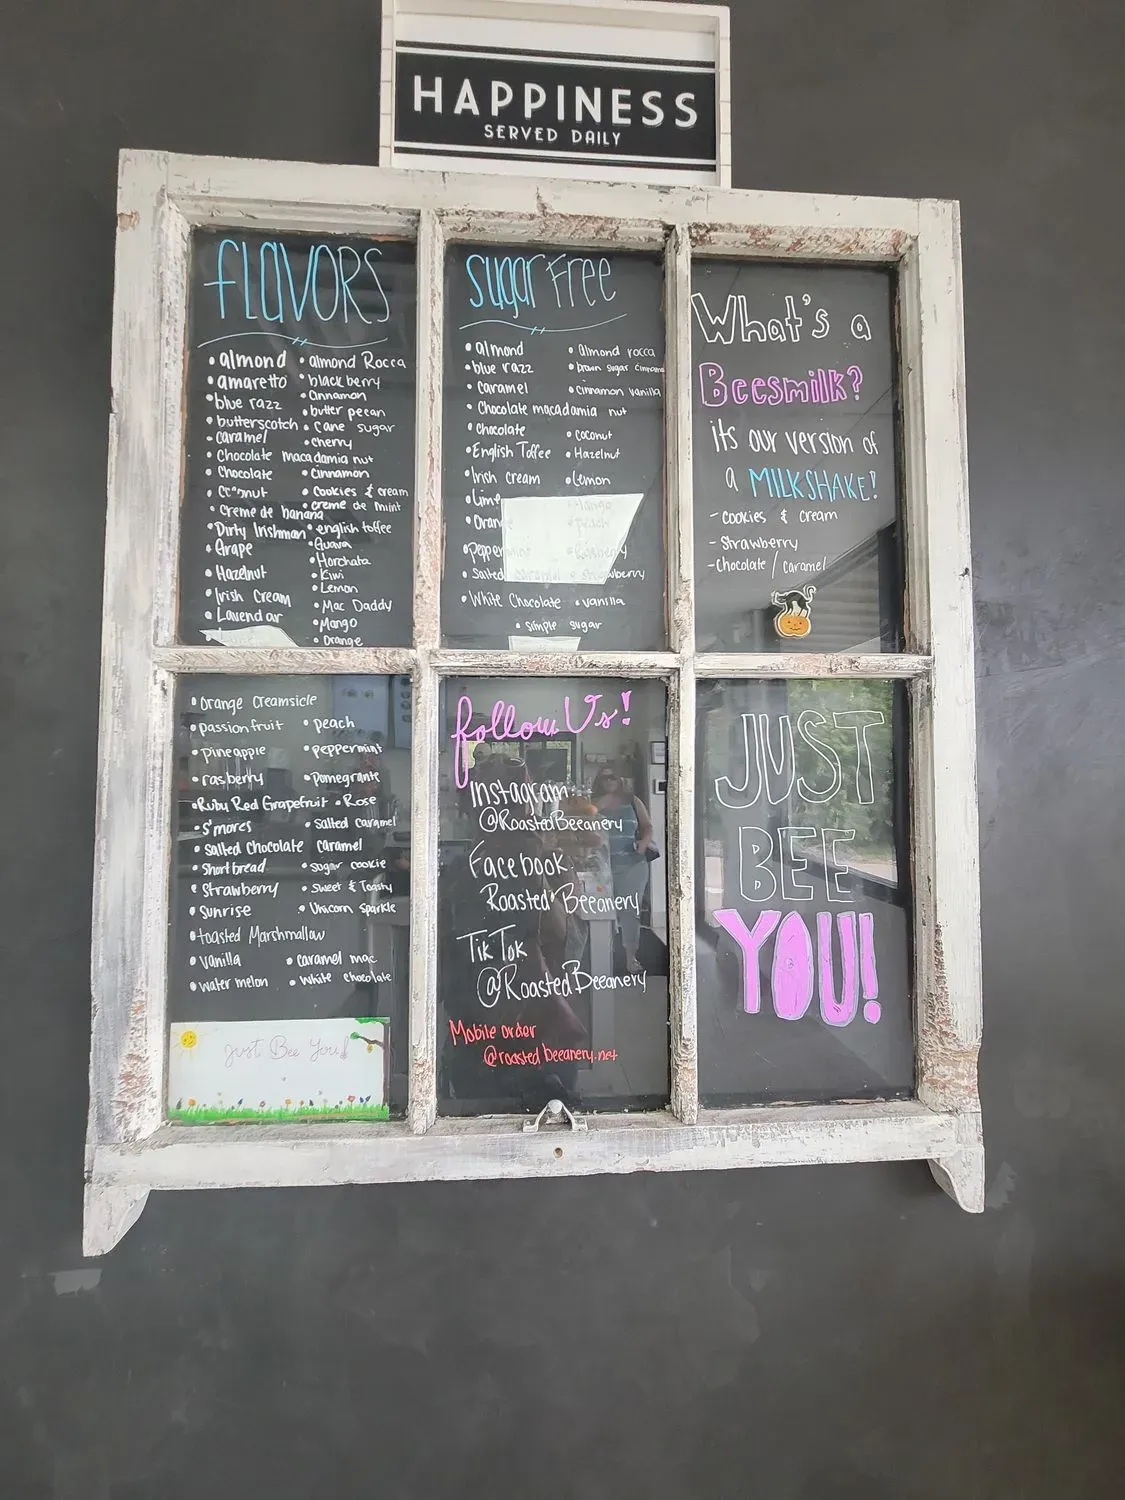 HAPPINESS
SERVED DAILY
FLAVORS
• almond • almond Rocca
• amaretto • blackberry
• blue razz • Cinnamon
• butter pecan
• butterscotch • Cane sugar
• caramel • cherry
• Chocolate macadamia nut
• Chocolate • Cinnamon
• Coconut • Cookies & cream
• creme de banana • creme de mint
• Dirty Irishman • english toffee
• Grape • Guava
• Horchata
• Hazelnut • Kiwi
• Lemon
• Irish Cream • Mac Daddy
• Lavendar • Mango
• Orange
sugar Free
• almond • almond rocca
• blue razz • brown sugar cinnamon
• caramel • cinnamon vanilla
• Chocolate macadamia nut
• Chocolate • coconut
• English Toffee • Hazelnut
• Irish cream • Lemon
• Lime • Mango
• Orange • peach
• Peppermint • Raspberry
• Salted caramel • strawberry
• White Chocolate • vanilla
• simple sugar
What's a
Beesmilk?
its our version of
a MILKSHAKE!
- cookies & cream
- Strawberry
- Chocolate / caramel
• Orange Creamsicle
• passion fruit • peach
• pineapple • peppermint
• rasberry • Pomegrante
• Ruby Red Grapefruit • Rose
• S'mores • Salted caramel
• Salted Chocolate caramel
• Short bread • sugar cookie
• Strawberry • Sweet & Toasty
• Sunrise • Unicorn Sparkle
• toasted Marshmallow
• vanilla • caramel mac
• water melon • White chocolate
Just Bee You!
follow Us!
Instagram
@RoastedBeeanery
Facebook
Roasted Beeanery
TikTok
@RoastedBeeanery
Mobile order
@roasted beeanery.net
JUST
BEE
YOU!